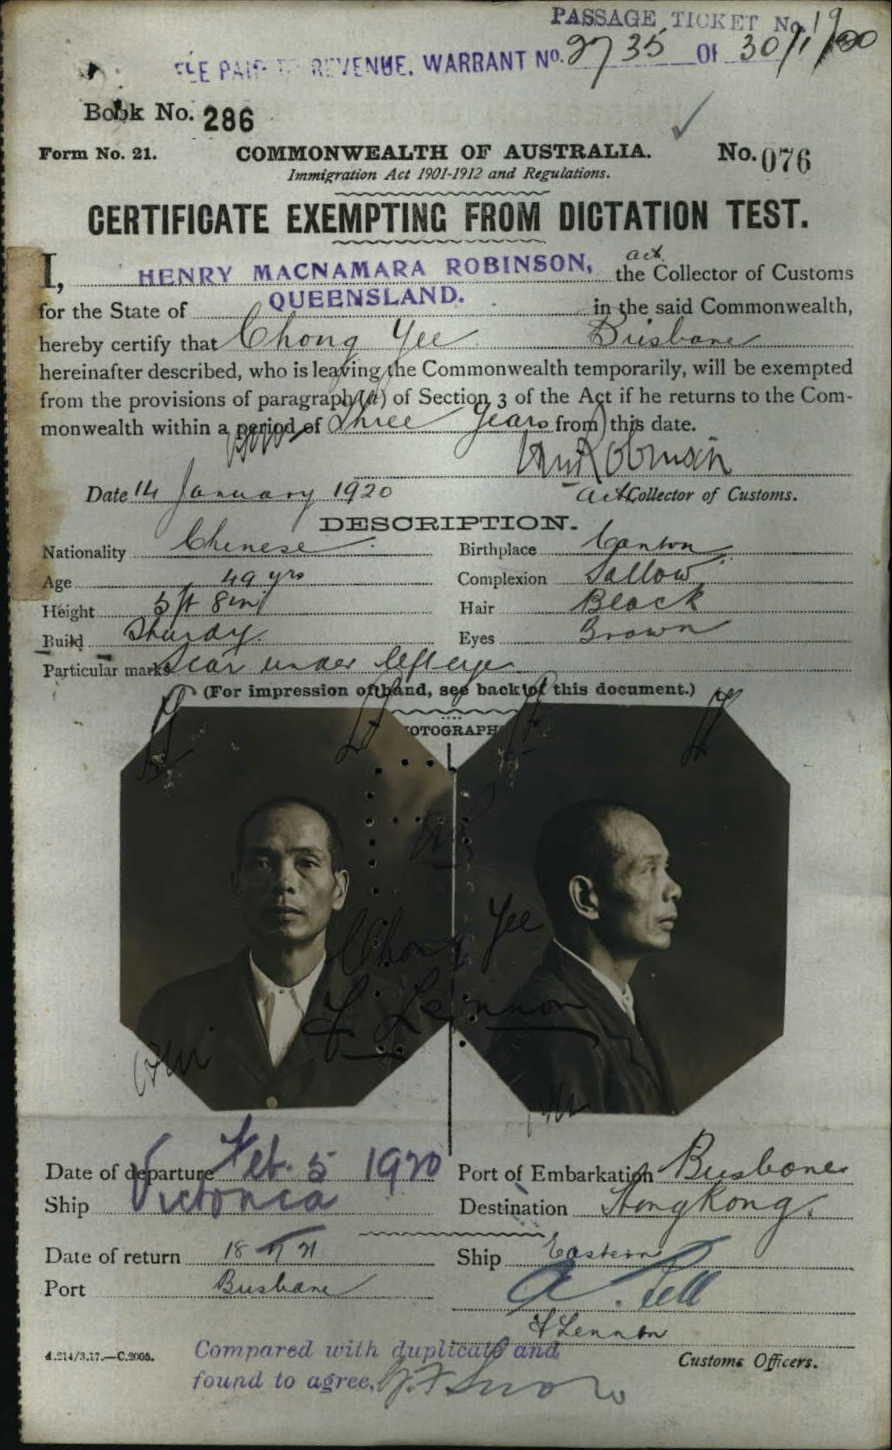 PASSAGE TICKET No. 19
FEE PAID TO REVENUE. WARRANT No. 2735 OF 30/1/20
Book No. 286
Form No. 21. COMMONWEALTH OF AUSTRALIA. No. 076
Immigration Act 1901-1912 and Regulations.
CERTIFICATE EXEMPTING FROM DICTATION TEST.
I, HENRY MACNAMARA ROBINSON, act the Collector of Customs
for the State of QUEENSLAND. in the said Commonwealth,
hereby certify that Chong Yee Brisbane
hereinafter described, who is leaving the Commonwealth temporarily, will be exempted
from the provisions of paragraph (a) of Section 3 of the Act if he returns to the Com-
monwealth within a period of Three Years from this date.
HM Robinson
Date 14 January 1920 act Collector of Customs.
DESCRIPTION.
Nationality Chinese Birthplace Canton
Age 49 yrs Complexion Sallow
Height 5 ft 8 in Hair Black
Build Sturdy Eyes Brown
Particular marks Scar under left eye
(For impression of hand, see back of this document.)
PHOTOGRAPHS
Chong Yee
F Lennon
Date of departure Feb. 5 1920 Port of Embarkation Brisbane
Ship Victoria Destination HongKong.
Date of return 18 21 Ship Eastern
Port Brisbane
F Lennon
4.214/3.17.—C.2005. Compared with duplicate and Customs Officers.
found to agree,